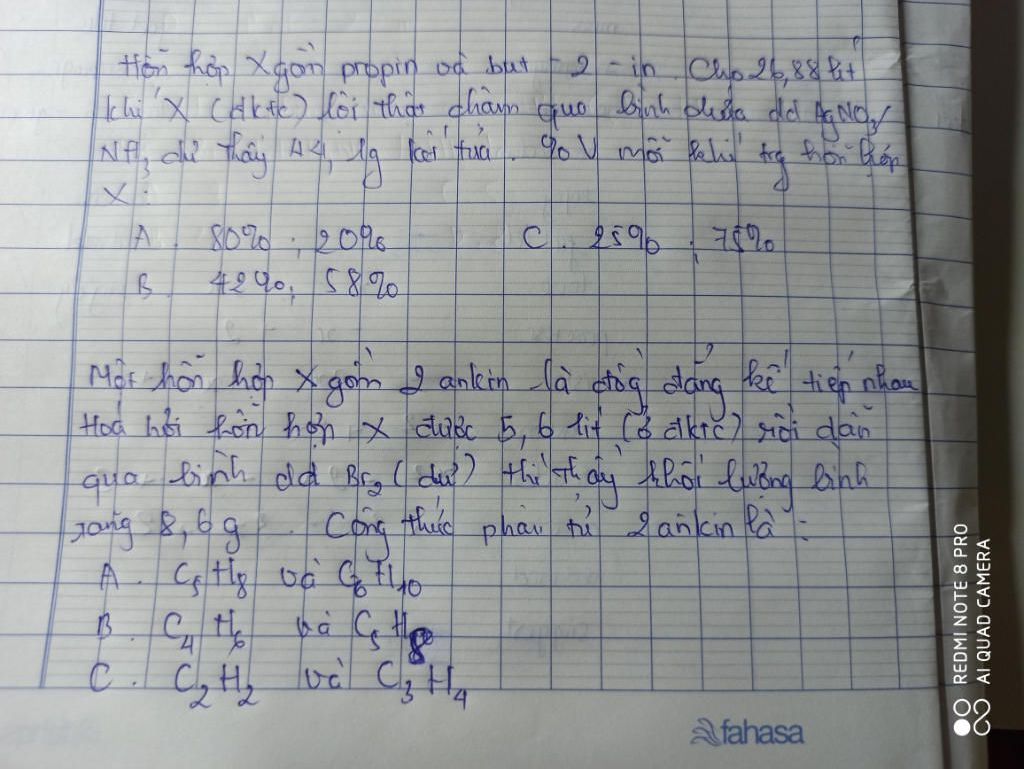 Hỗn hợp X gồm propin và but - 2 - in. Cho 26,88 lít
khí X (đktc) lội thật chậm qua bình chứa dd AgNO3/
NH3 dư thấy 44,1g kết tủa. %V mỗi khí trg hỗn hợp
X:
A. 80%; 20% C. 25%; 75%
B. 42%; 58%
Một hỗn hợp X gồm 2 ankin là đồg đẳng kế tiếp nhau
Hoá hơi hỗn hợp X được 5,6 lít (ở đktc) rồi dẫn
qua bình dd Br2 (dư) thì thấy khối lượng bình
tăng 8,6g. Công thức phân tử 2 ankin là:
A. C5H8 và C6H10
B. C4H6 và C5H8
C. C2H2 và C3H4
fahasa
REDMI NOTE 8 PRO
AI QUAD CAMERA